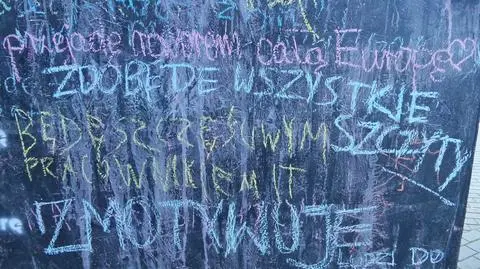 przejadę rowerem całą Europę
ZDOBĘDĘ WSZYSTKIE
SZCZYTY
BĘDĘ SZCZĘŚLIWYM
PRACOWNIKIEM IT
ZMOTYWUJĘ
LUDZI DO